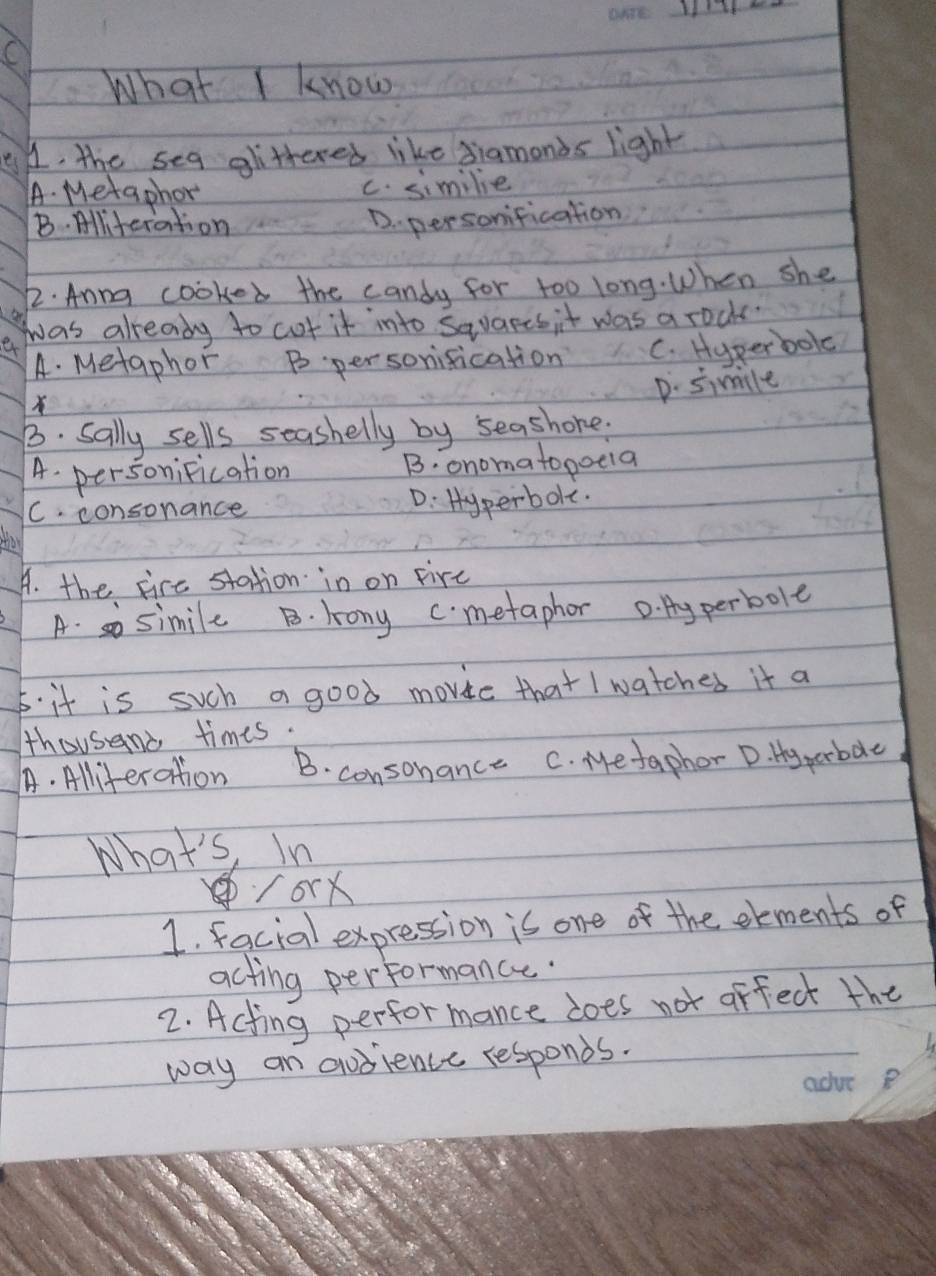 DATE
What I know
1. the sea glittered like diamonds light
A. Metaphor C. similie
B. Alliteration D. personification
2. Anna cooked the candy for too long. When she
was already to cut it into Squares, it was a rock.
A. Metaphor B. personification C. Hyperbole
D. simile
3. Sally sells seashelly by seashore.
A. personification B. onomatopoeia
C. consonance D. Hyperbole.
4. the fire station in on fire
A. simile B. Irony C. metaphor D. Hyperbole
5. it is such a good movie that I watched it a
thousand times.
A. Alliteration B. consonance C. Metaphor D. Hyperbole
What's In
/ or X
1. facial expression is one of the elements of
acting performance.
2. Acting performance does not affect the
way an audience responds.